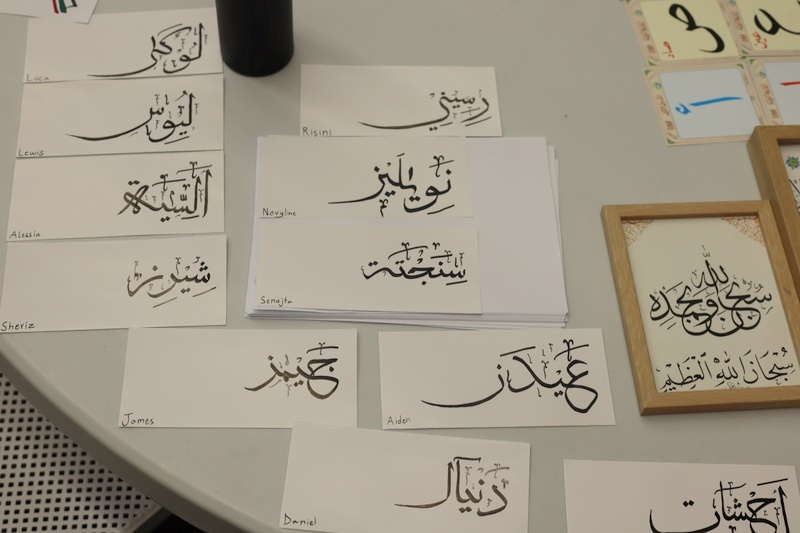 لوكا
Luca
ليوس
Lewis
ألسية
Alessia
شيرز
Sheriz
رسيني
Risini
نويليز
Novyline
سنجتة
Senajta
جيمز
James
عيدن
Aiden
دنيال
Daniel
سبحان الله وبحمده
سبحان الله العظيم
ص
صاد
أ